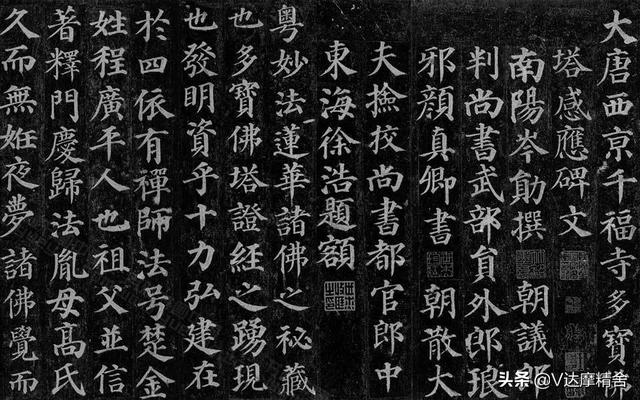 大唐西亰千福寺多寶佛
塔感應碑文
南陽岑勛撰 朝議郎
判尚書武部員外郎琅
邪顏真卿書 朝散大
夫撿挍尚書都官郎中
東海徐浩題額
粵妙法蓮華諸佛之祕藏
也多寶佛塔證經之踴現
也發明資乎十力弘建在
於四依有禪師法号楚金
姓程廣平人也祖父並信
著釋門慶歸法胤母高氏
久而無姙夜夢諸佛覺而
头条 @V达摩精舍